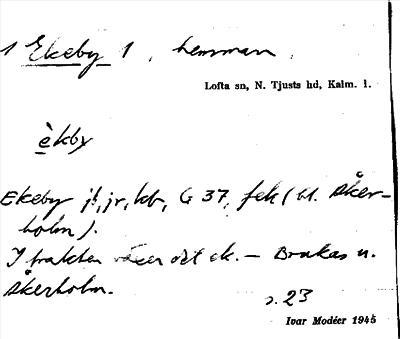 1 Ekeby 1, hemman.
Lofta sn, N. Tjusts hd, Kalm. l.
èkby
Ekeby j!, jr, kb, G 37, fek (bl. Åker-
holm).
I trakten växer det ek. – Brukas u.
Åkerholm.
s. 23
Ivar Modéer 1945